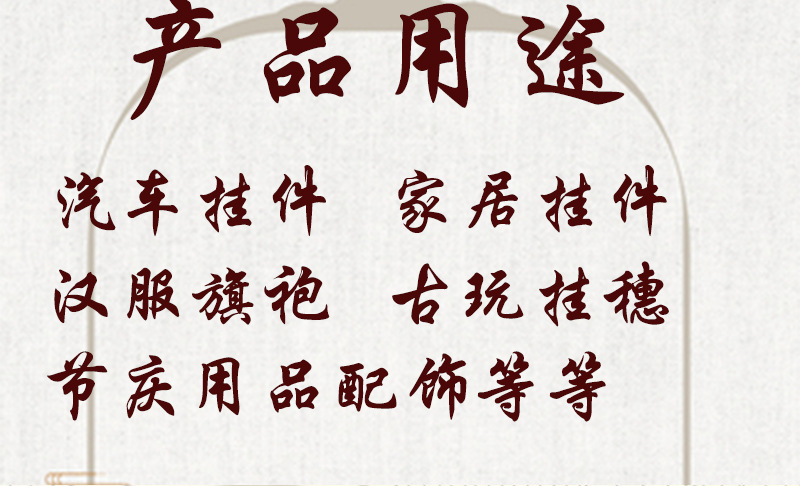 产品用途
汽车挂件 家居挂件
汉服旗袍 古玩挂穗
节庆用品配饰等等